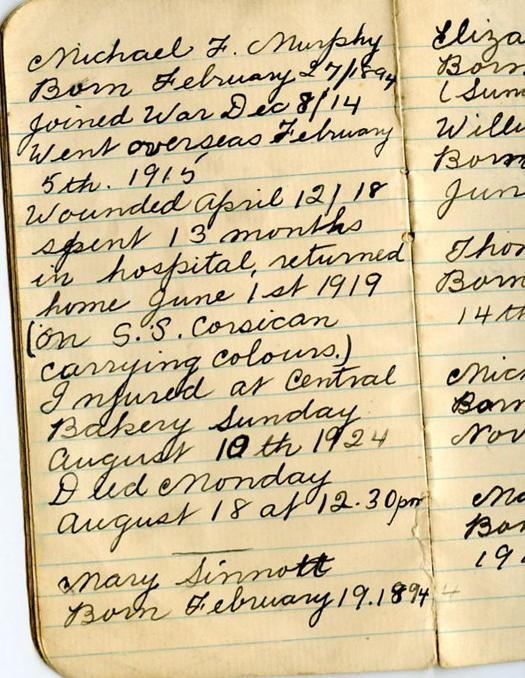 Michael F. Murphy
Born February 27/1894
joined War Dec 8/14
Went overseas February
5th. 1915
Wounded April 12/18
spent 13 months
in hospital, returned
home June 1st 1919
(on S.S. Corsican
carrying colours.)
Injured at Central
Bakery Sunday
August 10th 1924
Died Monday
August 18 at 12.30pm
Mary Sinnott
Born February 19.1894
Eliza
Born
(Sun
Willi
Born
Jun
Tho
Born
14th
Mich
Born
Nov
Ma
Bor
19